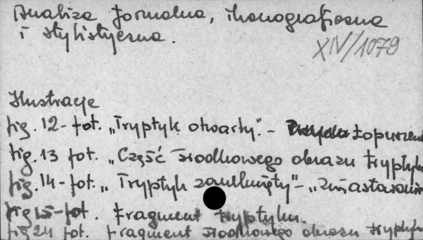 Analiza formalna, ikonograficzna
i stylistyczna.
XIV/1079
Ilustracje
fig. 12 - fot. "Tryptyk otwarty" -
fig. 13 fot. "Część środkowego obrazu tryptyku
fig. 14 - fot. „Tryptyk zamknięty" - „Zmartwychwstanie
fig 15 - fot. fragment tryptyku.
fig 24 fot. fragment środkowego obrazu tryptyku